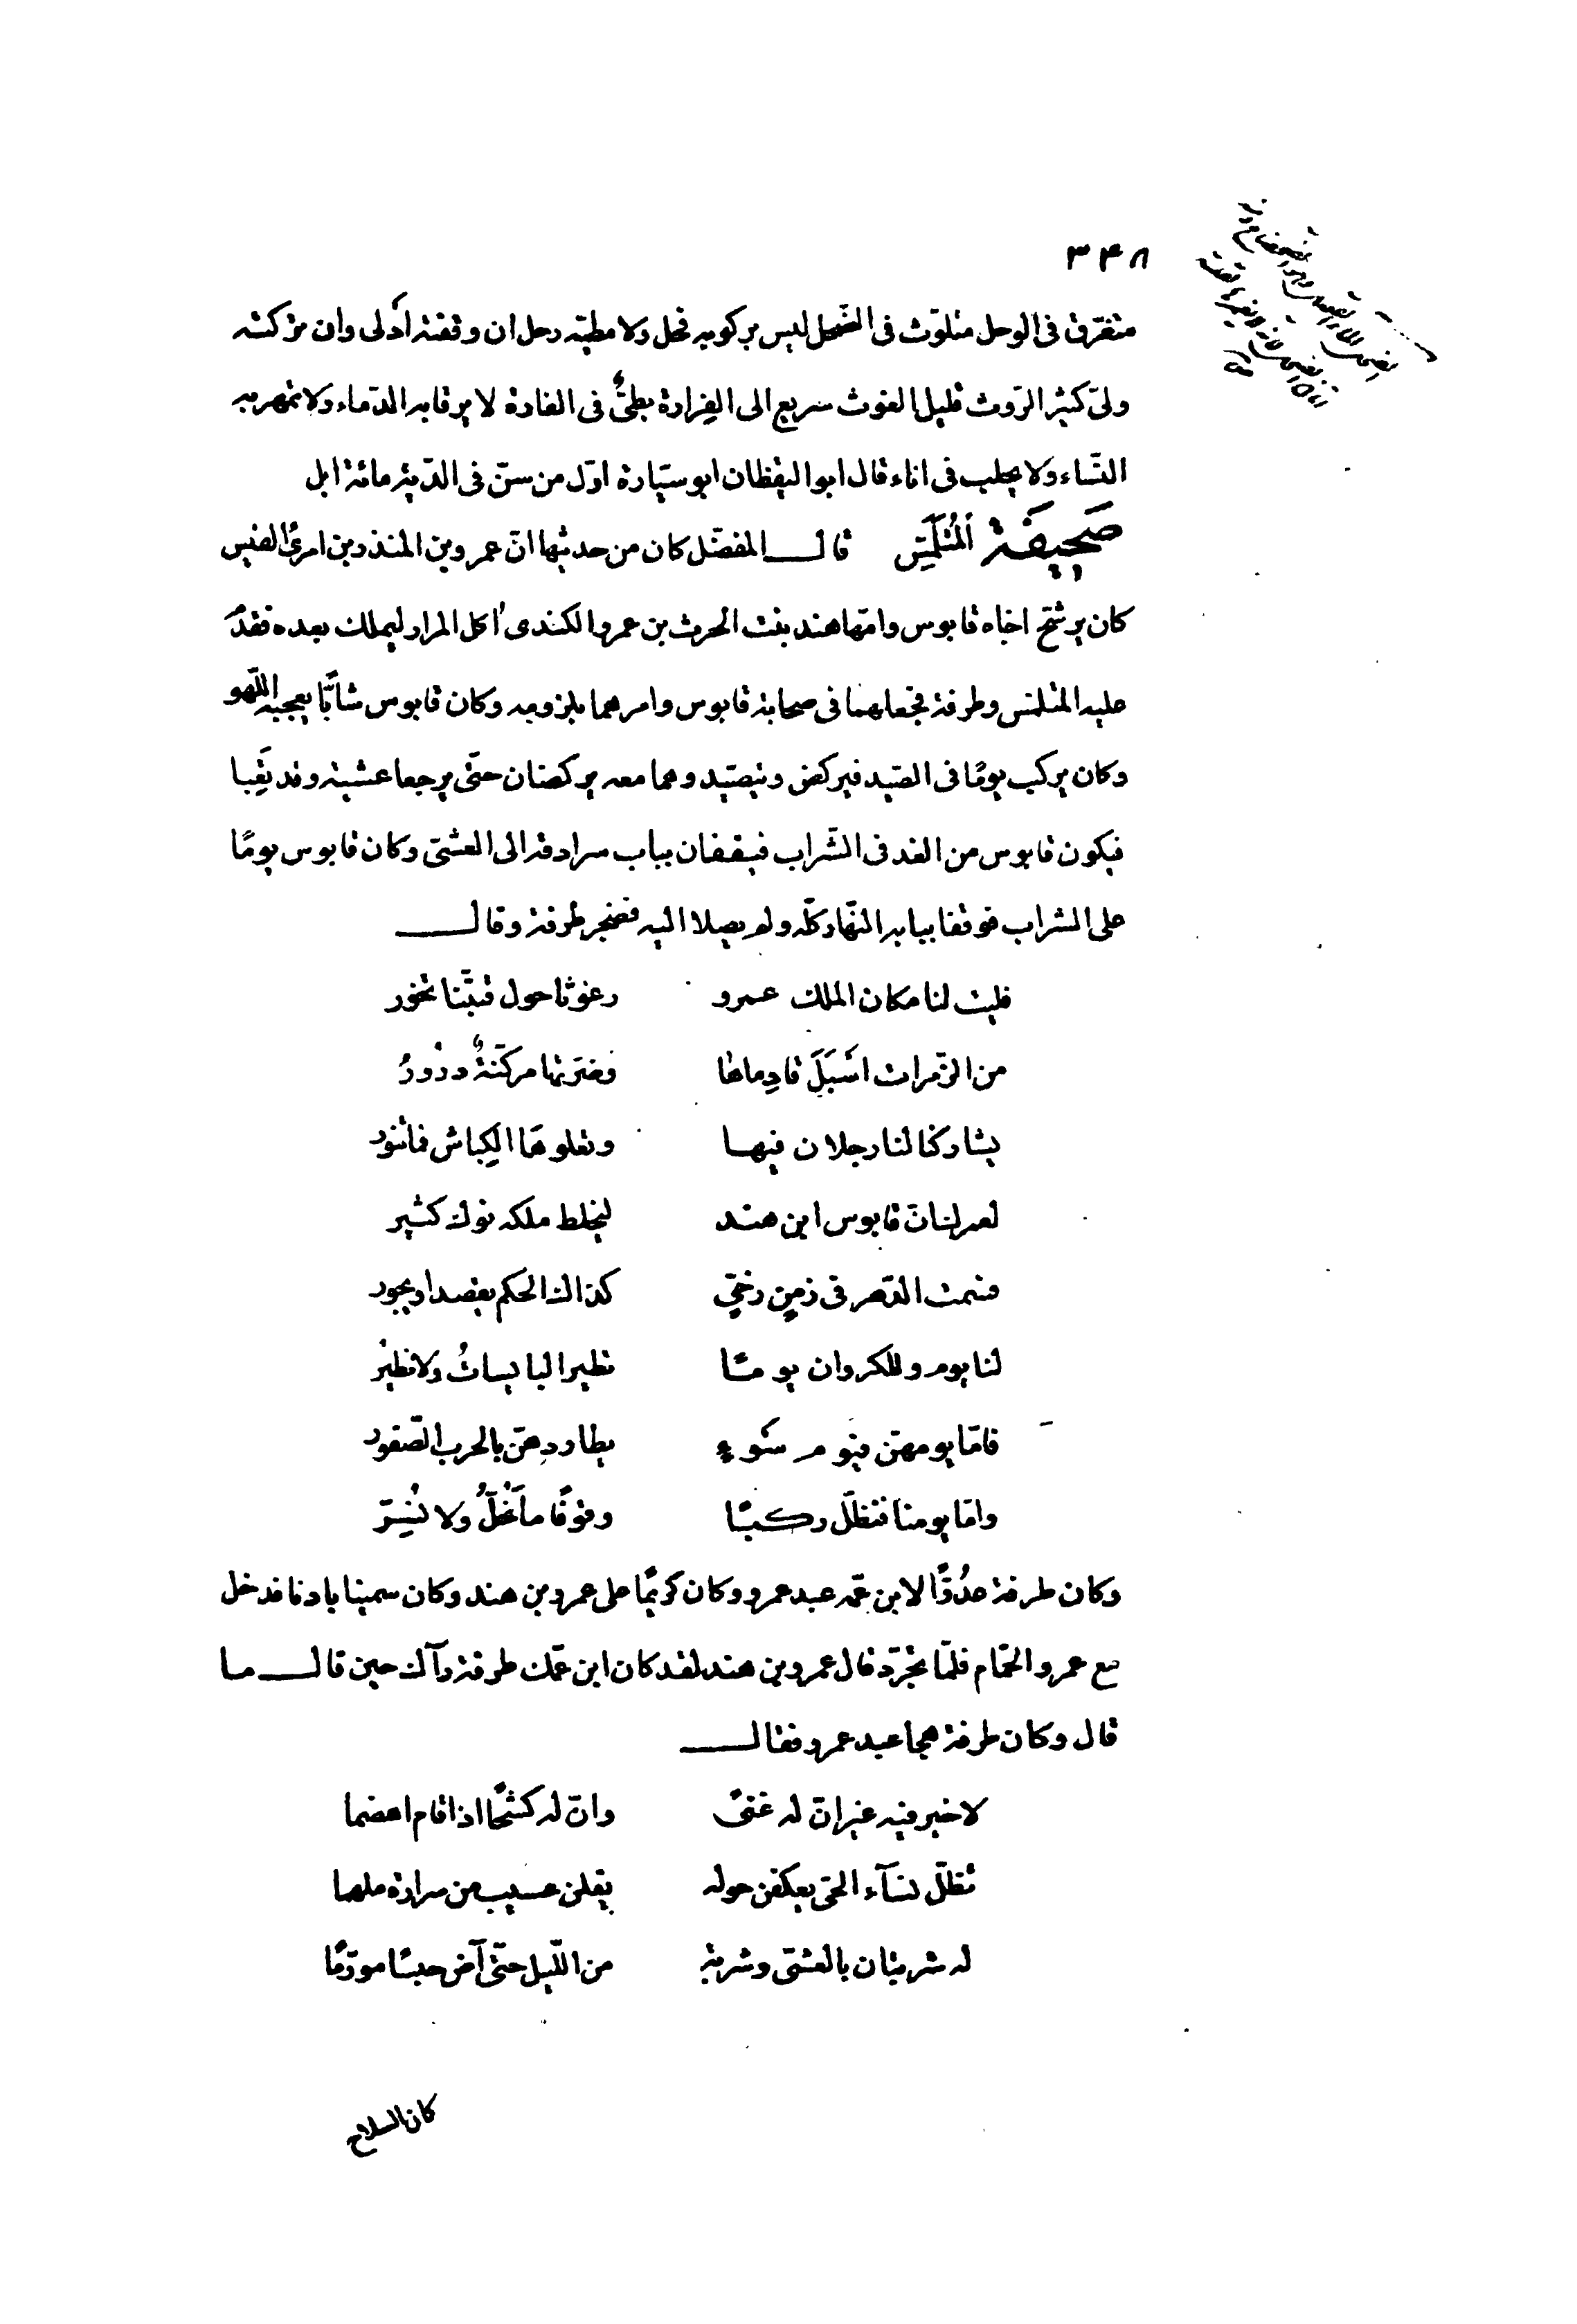 ٣٤٨
متفرّق فى الوحل متلوّث فى الضحل ليس بركوبه فحل ولا مطيّه رحل ان وقفته ادلى وان تركته
ولّى كثير الرّوث قليل الغوث سريع الى الفرارة بطئٌ فى الغارة لا يرقا به الدّماء ولا تمهر به
النّساء ولا يحلب فى اناء قال ابو اليقظان ابو سيّارة اوّل من سنّ فى الدّية مائة ابل
صَحِيفَة اَلْمُتَلَمِّس قال المفضّل كان من حديثها انّ عمرو بن المنذر بن امرئ القيس
كان يرشّح اخاه قابوس وامّهما هند بنت الحرث بن عمرو الكندى اكل المرار ليملك بعده فقدم
عليه المتلمّس وطرفة فجعلهما فى صحابة قابوس وامرهما بلزومه وكان قابوس شابًّا يعجبه اللّهو
وكان يركب يومًا فى الصّيد فيركض ويتصيّد وهما معه يركضان حتّى يرجعا عشيّة وقد تَعِبا
فيكون قابوس من الغد فى الشّراب فيقفان بباب سرادقه الى العشىّ وكان قابوس يومًا
على الشراب فوقفا ببابه النّهار كلّه ولم يصلا اليه فضجر طرفة وقال
فليت لنا مكان الملك عمرو رغوثا حول قبّتنا تخور
من الزّمرات اسْبَلَ قادِماها وضرّتها مركّنةٌ درُورُ
يشاركنا لنا رجلان فيها وتعلوهَا الكِباش فما تنور
لعمرك انّ قابوس ابن هند ليخلط ملكه نوك كثير
قسمت الدّهر فى زمنٍ رخىٍّ كذاك الحكم يقصد او يجور
لنا يوم وللكروان يومًا تطير البايسات ولا نطير
فامّا يومهنّ فيوم سَوءٍ يطاردهنّ بالحرب الصّقور
وامّا يومنا فنظلّ ركبًا وقوفًا ما نَحُلُّ ولا نُسِرّ
وكان طرفة عدُوًّا لابن عمّه عبد عمرو وكان كريمًا على عمرو بن هند وكان سمينا بادنا فدخل
مع عمرو الحمّام فلمّا تجرّد قال عمرو بن هند لقد كان ابن عمّك طرفة رآك حين قال ما
قال وكان طرفة هجا عبد عمرو فقال
لا خير فيه غير انّ له غنىً وانّ له كشحًا اذا قام اهضما
تظلّ نسآء الحىّ يعكفن حوله يقلن عسيب من سرارة ملهما
له شربتان بالعشىّ وشربة من اللّيل حتّى آض حبسًا مورّمًا
كان السلاح